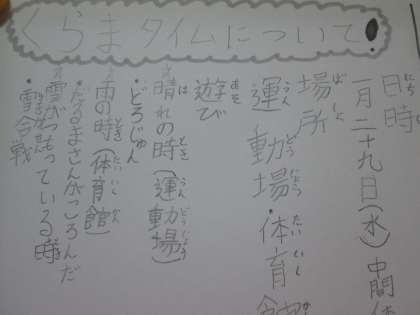 くらまタイムについて
日時
一月二十九日(水)中間休
場所
運動場・体育館
遊び
晴れの時(運動場)
・どろじゅん
雨の時(体育館)
・だるまさんがころんだ
雪がつもっている時
・雪合戦